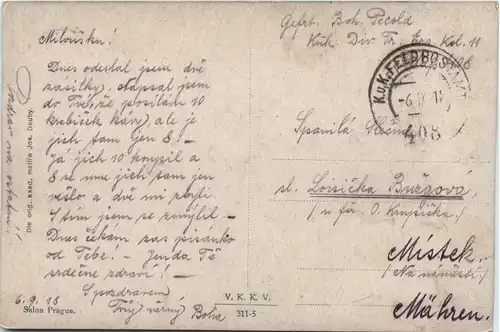 Gefrt. Boh. Pecold
Kuk. Div. Tr. Ers. Kol. 11
K.u.K. FELDPOSTAMT
408
Miloušku!
Dnes odeslal jsem dvě
zásilky. Napsal jsem
do Tvé, že posílám 10
krabiček kávy, ale je
jich tam jen 8! –
Já jich 10 koupil a
8 se mne jich tam jen
vešlo a dvě mi zbyli.
S tím jsem se zmýlil –
Dnes čekám zas psaníčko
od Tebe. – Jenda Tě
srdečně zdraví! –
S pozdravem
Tvůj věrný Boha
6. 9. 18
Salon Prague.
Die orig. exed. maître Jos. Douby.
V. K. K. V.
311-5
Spanilá Slečna
sl. Loisička Buržová,
(u fa. O. Krupička)
Místek.
(Na náměstí)
Mähren.